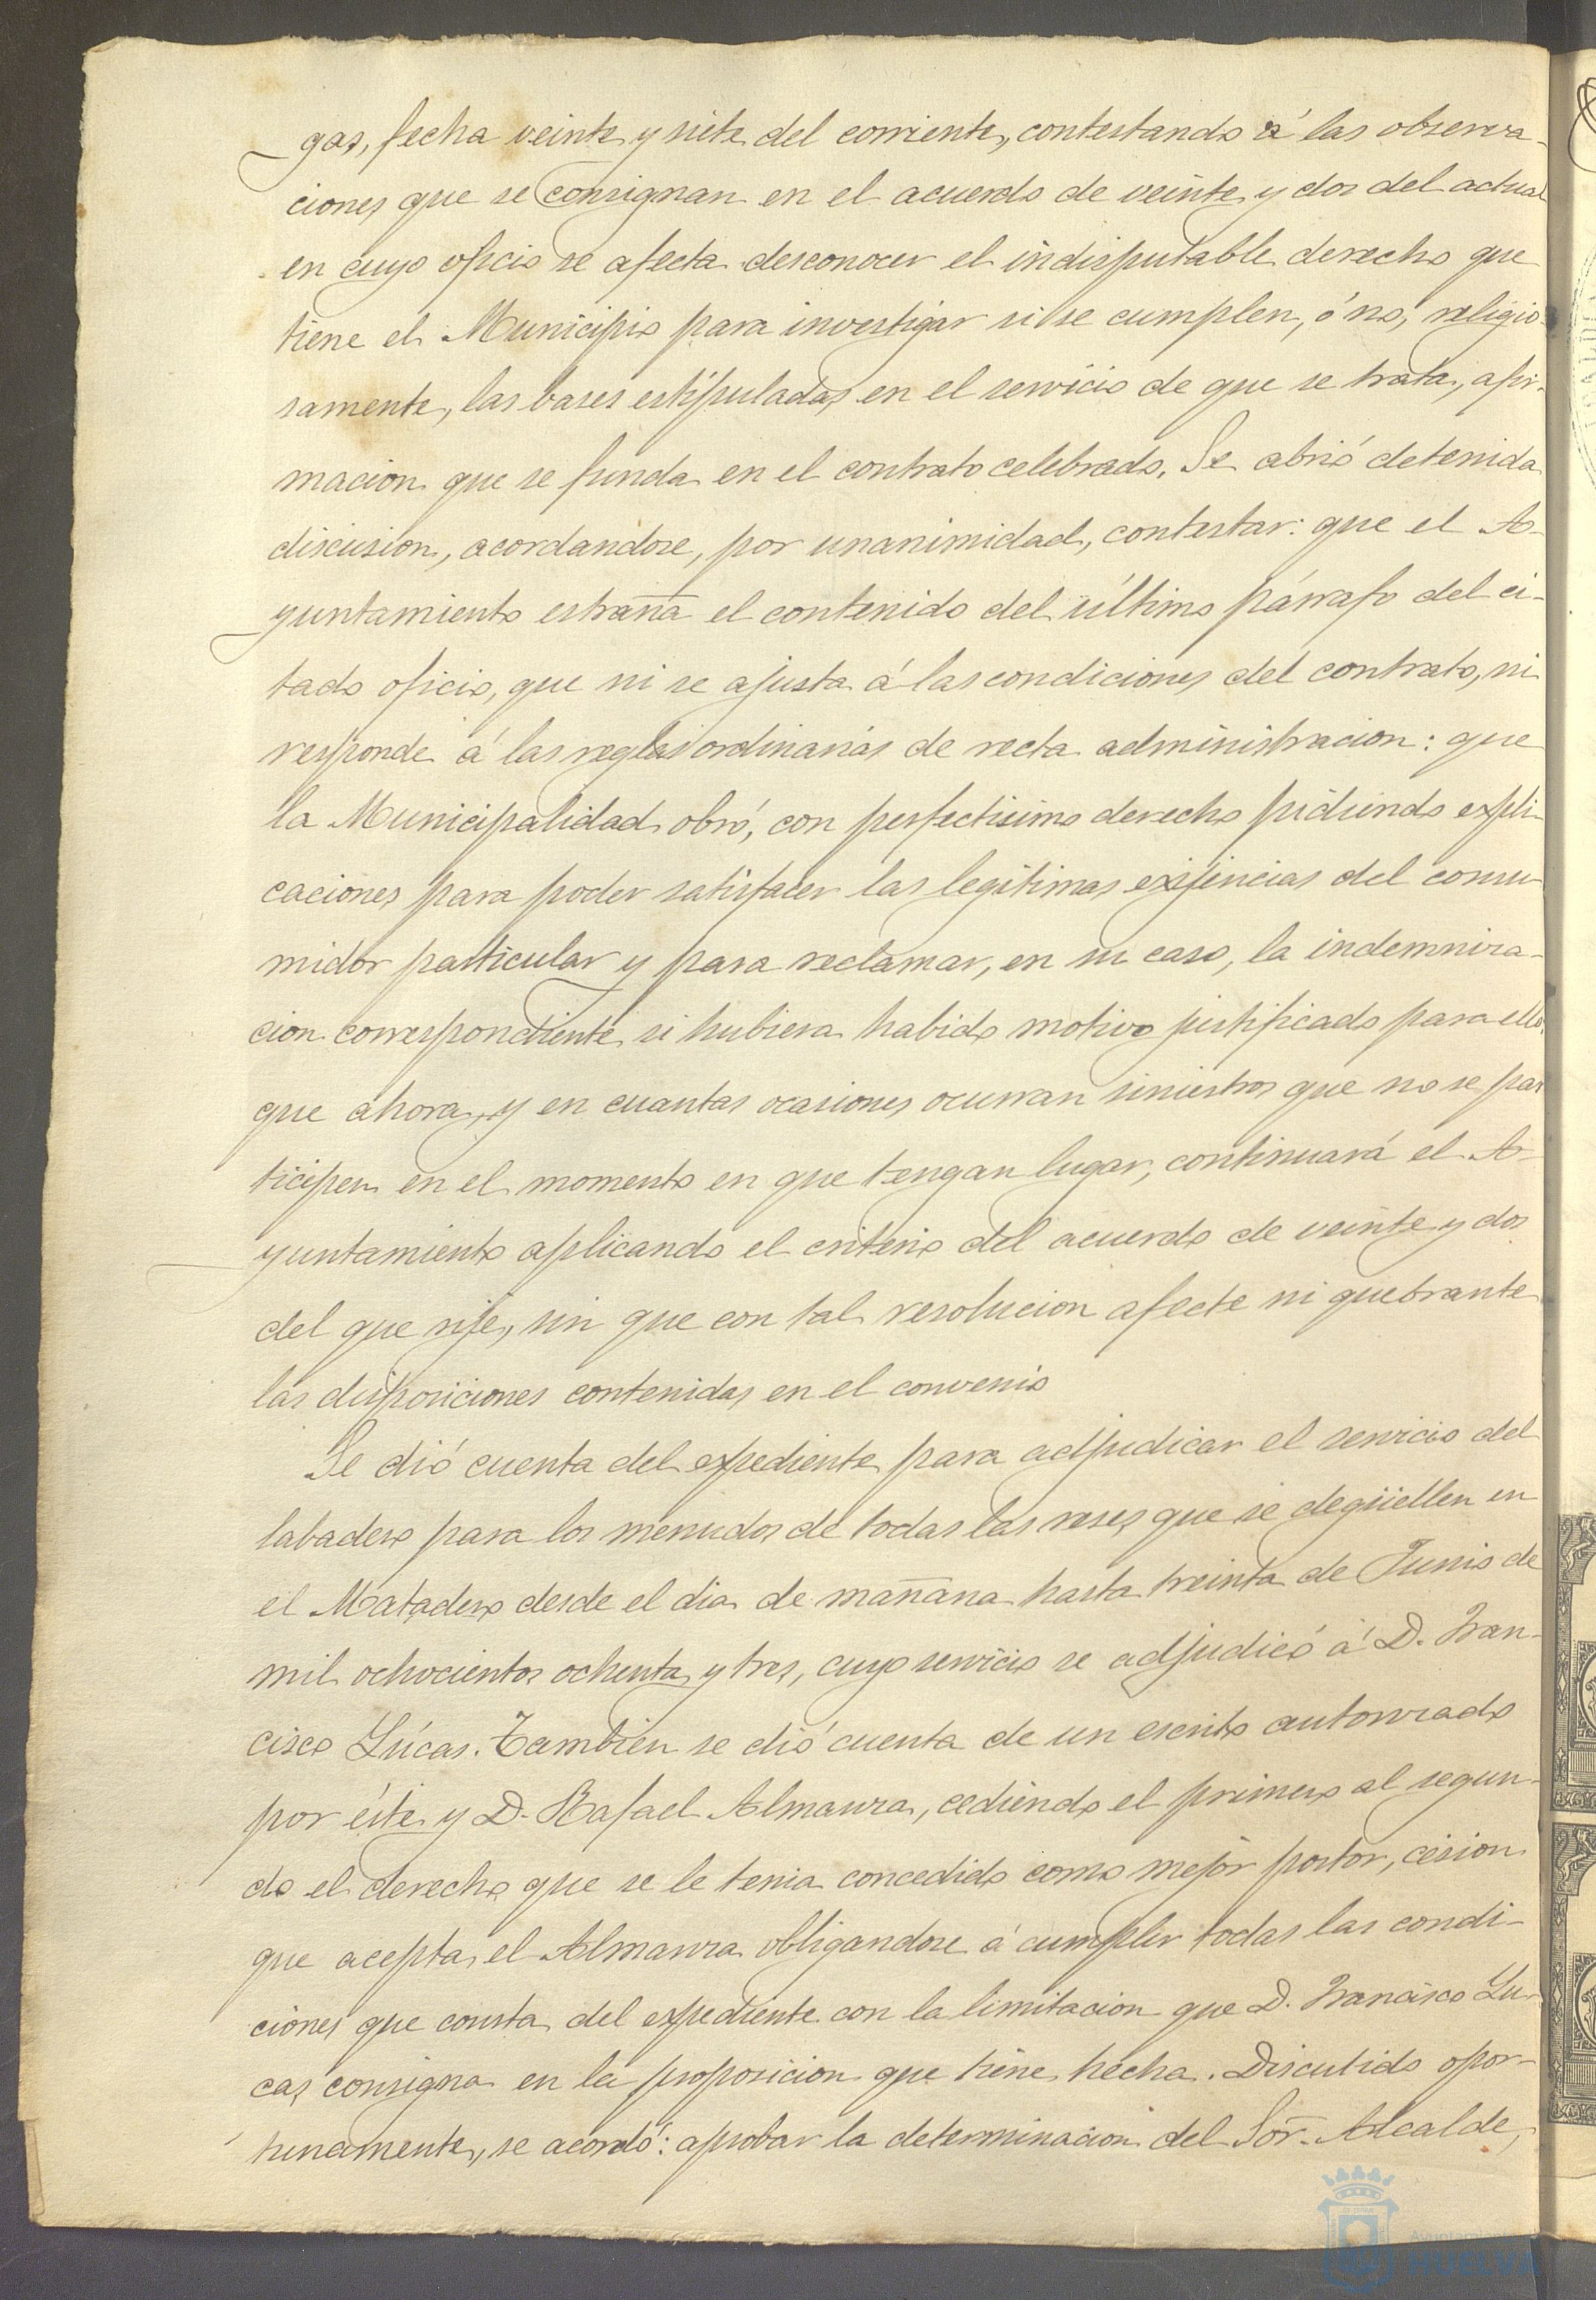 gas, fecha veinte y siete del corriente, contestando á las observa-
ciones que se consignan en el acuerdo de veinte y dos del actual
en cuyo oficio se afecta desconocer el indisputable derecho que
tiene el Municipio para investigar si se cumplen, ó no, religio-
samente, las bases estipuladas en el servicio de que se trata, afir-
macion que se funda en el contrato celebrado. Se abrió detenida
discusion, acordandose, por unanimidad, contestar: que el A-
yuntamiento estraña el contenido del último párrafo del ci-
tado oficio, que ni se ajusta á las condiciones del contrato, ni
responde á las reglas ordinarias de recta administracion: que
la Municipalidad obró, con perfectisimo derecho pidiendo expli-
caciones para poder satisfacer las legítimas exijencias del consu-
midor particular y para reclamar, en su caso, la indemniza-
cion correspondiente si hubiera habido motivo justificado para ello:
que ahora, y en cuantas ocasiones ocurran siniestros que no se par
ticipen en el momento en que tengan lugar, continuará el A-
yuntamiento aplicando el criterio del acuerdo de veinte y dos
del que rije, sin que con tal resolucion afecte ni quebrante
las disposiciones contenidas en el convenio
Se dió cuenta del expediente para adjudicar el servicio del
labadero para los menudos de todas las reses que se degüellen en
el Matadero desde el dia de mañana hasta treinta de Junio de
mil ochocientos ochenta y tres, cuyo servicio se adjudicó á D. Fran-
cisco Lúcas. Tambien se dió cuenta de un escrito autorizado
por éste y D. Rafael Almanza, cediendo el primero al segun-
do el derecho que se le tenia concedido como mejor postor, cesion
que acepta el Almanza obligandose á cumplir todas las condi-
ciones que consta del expediente con la limitacion que D. Francisco Lu-
cas consigna en la proposicion que tiene hecha. Discutido opor-
tunamente, se acordó: aprobar la determinacion del Sor. Alcalde,
HUELVA